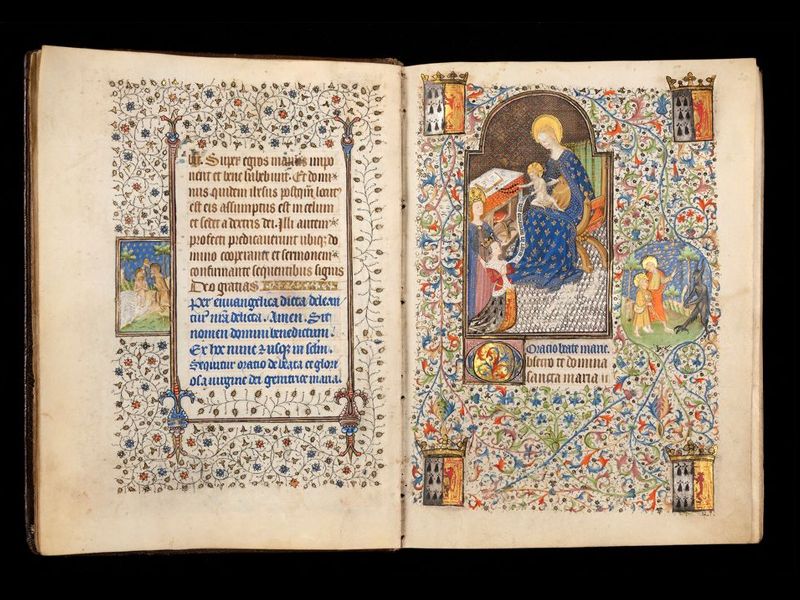 Super egros manus impo
nent et bene habebunt. Et domi
nus quidem ihesus postquam locut
est eis assumptus est in celum
et sedet a dextris dei. Illi autem
profecti predicaverunt ubiq; do
mino cooperante et sermonem
confirmante sequentibus signis
Deo gratias
Per euuangelica dicta delean
tur nostra delicta. Amen. Sit
nomen domini benedictum.
Ex hoc nunc & usq; in seculum.
Sequitur oratio de beata et glori
osa uirgine dei genitrice maria.
Oratio beate marie
Obsecro te domina
sancta maria